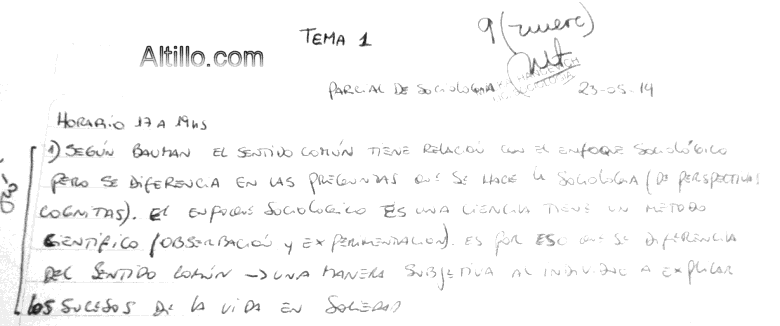 TEMA 1
9 (nueve)
Altillo.com
PARCIAL DE SOCIOLOGIA
23-05-14
HORARIO 17 A 19HS
1) SEGÚN BAUMAN EL SENTIDO COMÚN TIENE RELACIÓN CON EL ENFOQUE SOCIOLÓGICO
PERO SE DIFERENCIA EN LAS PREGUNTAS QUE SE HACE LA SOCIOLOGIA (DE PERSPECTIVAS
COGNITAS). EL ENFOQUE SOCIOLOGICO ES UNA CIENCIA TIENE UN METODO
CIENTÍFICO (OBSERBACIÓN Y EXPERIMENTACION). ES POR ESO QUE SE DIFERENCIA
DEL SENTIDO COMÚN -> UNA MANERA SUBJETIVA AL INDIVIDUO A EXPLICAR
LOS SUCESOS DE LA VIDA EN SOCIEDAD